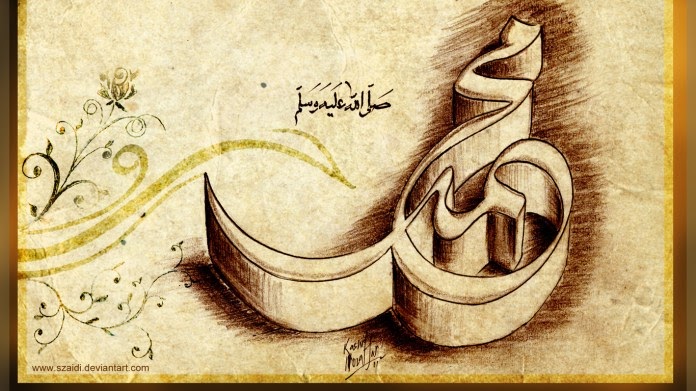 صَلّى اللّه عَلَيْهِ وَسَلّم
محمد
www.szaidi.deviantart.com